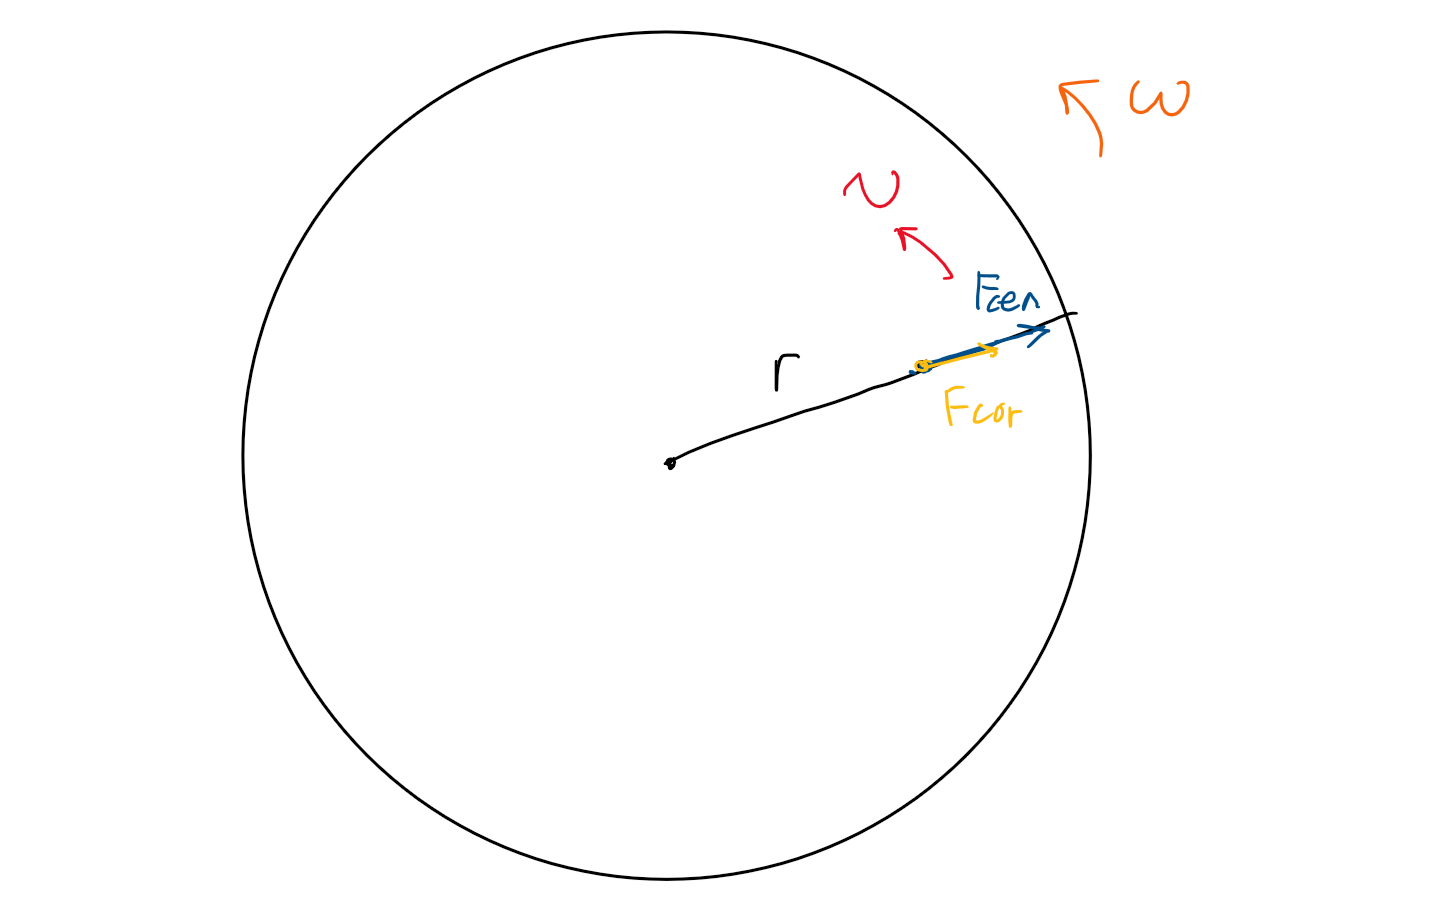 ω
v
Fcen
r
Fcor